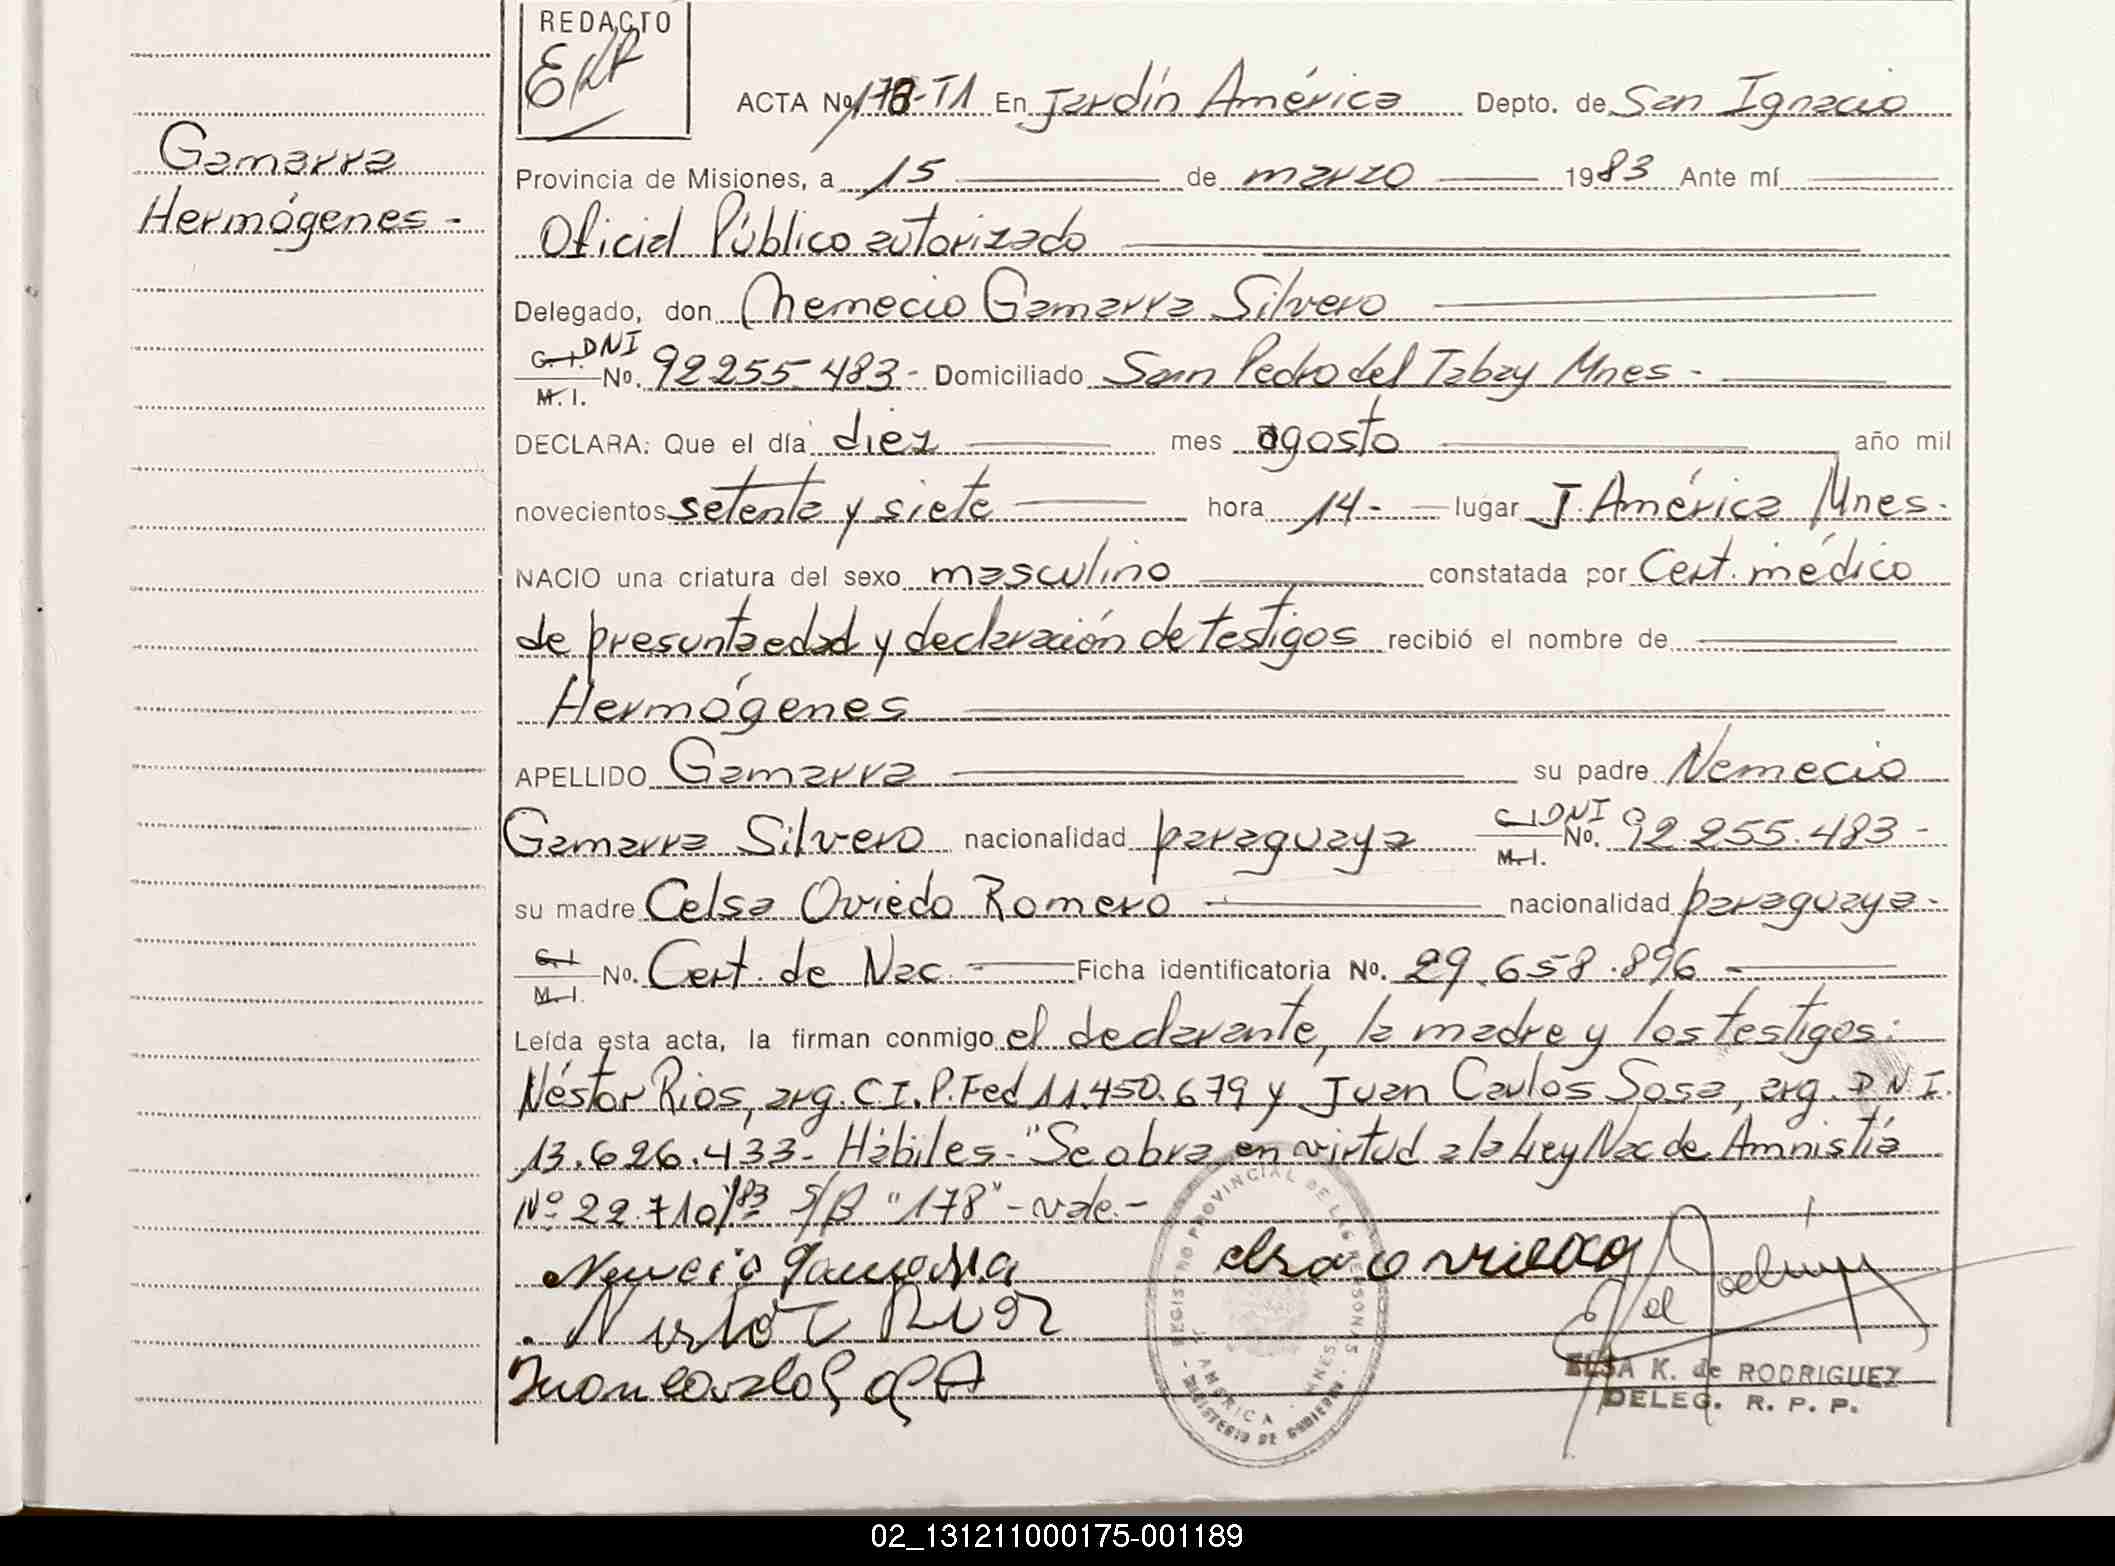 REDACTO
EKR
ACTA Nº 178-T1 En Jardín América Depto. de San Ignacio
Gamarra
Hermógenes -
Provincia de Misiones, a 15 de marzo 1983 Ante mí
Oficial Público autorizado
Delegado, don Nemecio Gamarra Silvero
C.I. DNI
M.I. No. 92.255.483- Domiciliado San Pedro del Tabay Mnes -
DECLARA: Que el día diez mes agosto año mil
novecientos setenta y siete hora 14- lugar J. América Mnes.
NACIO una criatura del sexo masculino constatada por Cert. médico
de presunta edad y declaración de testigos recibió el nombre de
Hermógenes
APELLIDO Gamarra su padre Nemecio
Gamarra Silvero nacionalidad paraguaya C.I. DNI M.I. No. 92.255.483-
su madre Celsa Oviedo Romero nacionalidad paraguaya-
C.I. M.I. No. Cert. de Nac. - Ficha identificatoria No. 29.658.896 -
Leída esta acta, la firman conmigo el declarante, la madre y los testigos:
Néstor Rios, arg. C.I. P. Fed 11.450.679 y Juan Carlos Sosa, arg. D.N.I.
13.626.433- Hábiles- "Se obra en virtud a la Ley Nac de Amnistía
Nº 22.710/83 S/B "178" - vale. -
Nemecio Gamarra
REGISTRO PROVINCIAL DE LAS PERSONAS
J. AMERICA - MNES.
MINISTERIO DE GOBIERNO
ELSA K. de RODRIGUEZ
DELEG. R. P. P.
02_131211000175-001189